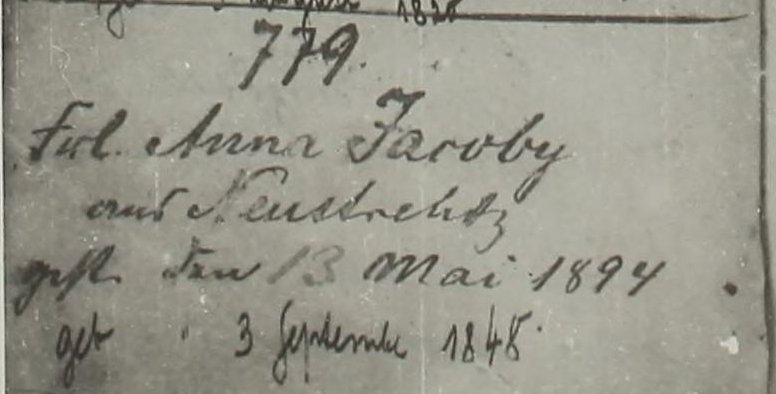 1820
779.
Frl. Anna Jacoby
aus Neustrelitz
gest. den 13 Mai 1894
geb " 3 September 1848